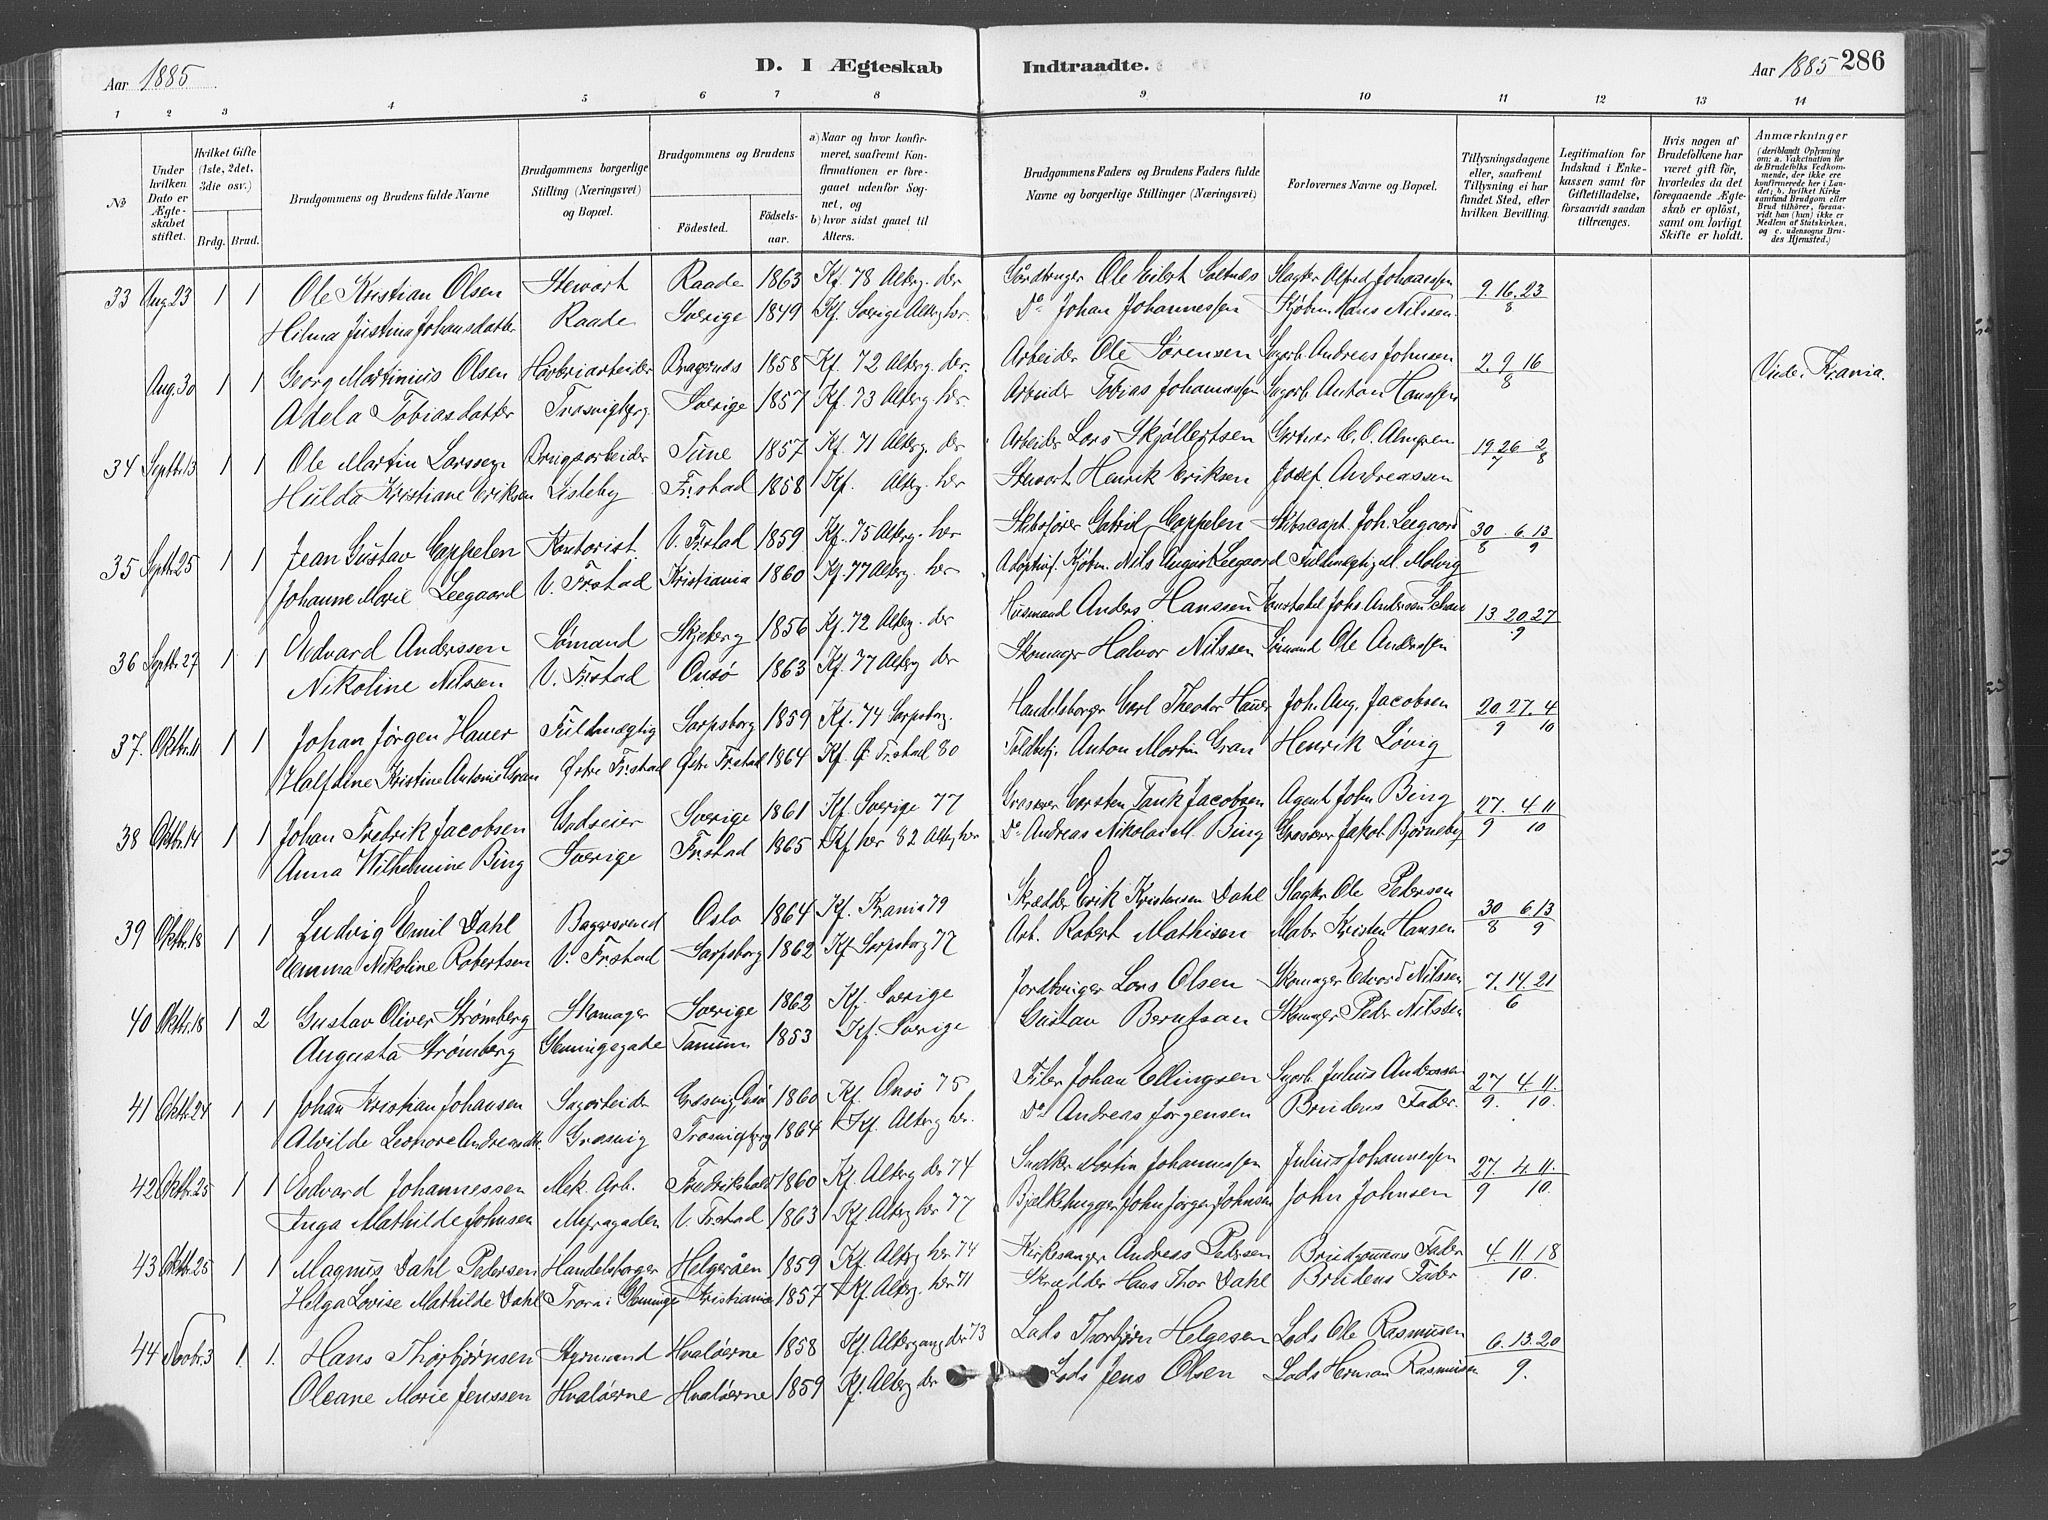 Aar 1885 D. I Ægteskab Indtraadte. Aar 1885 286
1 2 3 4 5 6 7 8 9 10 11 12 13 14
No
Under hvilken Dato er Ægteskabet stiftet.
Hvilket Gifte (1ste, 2det, 3die osv.)
Brdg. Brud.
Brudgommens og Brudens fulde Navne
Brudgommens borgerlige Stilling (Næringsvei) og Bopæl.
Brudgommens og Brudens
Fødested. Fødselsaar.
a) Naar og hvor konfirmeret, saafremt Konfirmationen er foregaaet udenfor Sognet, og
b) hvor sidst gaaet til Alters.
Brudgommens Faders og Brudens Faders fulde Navne og borgerlige Stillinger (Næringsvei)
Forlovernes Navne og Bopæl.
Tillysningsdagene eller, saafremt Tillysning ei har fundet Sted, efter hvilken Bevilling.
Legitimation for Indskud i Enkekassen samt for Giftetilladelse, forsaavidt saadan tiltrænges.
Hvis nogen af Brudefolkene har været gift før, hvorledes da det foregaaende Ægteskab er opløst, samt om lovligt Skifte er holdt.
Anmærkninger (deriblandt Oplysning om: a. Vakcination for de Brudefolks Vedkommende, der ikke ere konfirmerede her i Landet; b. hvilket Kirkesamfund Brudgom eller Brud tilhører, forsaavidt han (hun) ikke er Medlem af Statskirken, og c. udensogns Brudes Hjemsted.)
33 Aug 23 1 1 Ole Kristian Olsen Stewart Raade 1863 Kf. 78 Alterg. der Gårdbruger Ole Eilert Saltnes Slagter Alfred Johannessen 9. 16. 23
Hilma Justina Johansdatter Raade Sverige 1849 Kf. Sverige Alterg her. Do Johan Johannessen Skjøbm. Hans Nilssen. 8
Aug. 30 1 1 Georg Martinius Olsen Høvleriarbeider Bragernes 1858 Kf. 72 Alterg. der. Arbeider Ole Sørensen Sagarb. Andreas Johnsen 2. 9 16 Vide. Krania.
Adela Tobiasdatter Trosvigberg. Sverige 1857 Kf. 73 Alterg. her Arbeider Tobias Johannessen Sagarb. Anton Hanssen 8
34 Septbr. 13 1 1 Ole Martin Larssen Brugsarbeider Tune 1857 Kf. 71 Alterg. der Arbeider Lars Skjøllertsen Gartner C. O. Almgren 19 26 2
Hulda Kristiane Eriksen Lisleby Fr.stad 1858 Kf. Alterg. her Stewart Henrik Eriksen Josef Andreassen 7 8
35 Septbr. 25 1 1 Jean Gustav Cappelen Kontorist. V. Fr.stad 1859 Kf. 75 Alterg. her Skibsfører Gabriel Cappelen Skibscapt. Joh. Leegaard 30 6 13
Johanne Marie Leegaard V. Fr.stad Kristiania 1860 Kf. 77 Alterg. her Adoptivf. Kjøbm. Nils August Leegaard Fuldmægtig M. Molvig 8 9
36 Septbr. 27 1 1 Edvard Anderssen Sømand Skjeberg 1856 Kf. 72 Alterg. der Husmand Anders Hanssen Konstabel Johs. Andersen 13 20 27
Nikoline Nilsen V. Fr.stad Onsø 1863 Kf. 77 Alterg der Skomager Halvor Nilssen Sømand Ole Anderssen 9
37. Oktbr. 11 1 1 Johan Jørgen Hauer Fuldmægtig Sarpsborg 1859 Kf. 74 Sarpsborg. Handelsborger Carl Theodor Hauer Joh. Aug. Jacobsen 20. 27. 4
Halfdine Kristine Antonie Gran Østre Fr.stad Østre Fr.stad 1864 Kf. Ø Fr.stad 80 Toldbetj. Anton Martin Gran Henrik Løvig 9 10
38 Oktbr. 14 1 1 Johan Fredrik Jacobsen Godseier Sverige 1861 Kf. Sverige 77 Grosserer Carsten Tank Jacobsen Agent John Bing 27. 4 11
Anna Wilhelmine Bing Sverige Fr.stad 1865 Kf her 82 Alterg her Do. Andreas Nikolai M. Bing Grosserer Jakob Bjørneby 9 10
39 Oktbr. 18 1 1 Ludvig Emil Dahl Bagersvend Oslo 1864 Kf. Krania 79 Skrædder Erik Kristensen Dahl Slagter Ole Pedersen 30 6 13
Emma Nikoline Robertsen V. Fr.stad Sarpsborg 1862 Kf Sarpsborg 77 Arb. Robert Mathisen Kristen Hansen 8 9
40 Oktbr. 18 1 2 Gustav Oliver Strømberg Skomager Sverige 1862 Kf. Sverige Jordbruger Lars Olsen Skomager Edvard Nilssen 7. 14 21
Augusta Strømberg Glemmingegade Tanum 1853 Kf. Sverige Gustav Skomager Peder Nilssen 6
41 Oktbr. 24 1 1 Johan Kristian Johansen Sagarbeider Græsvig, Onsø 1860 Kf. Onsø 75 Filer Johan Ellingsen Sagarb. Julius Anderssen 27 4 11.
Alvilde Leonore Andreasdtr. Græsvig Trosvigberg 1864 Kf. Alterg her. Do Andreas Jørgensen Brudens Fader. 9. 10.
42 Oktbr. 25 1 1 Edvard Johannessen Mek. Arb. Fredrikshald 1860 Kf. Alterg der 74 Snedker Martin Johannessen Julius Johannessen 27. 4 11.
Inga Mathilde Johnsen V. Fr.stad 1863 Kf. Alterg her 77 Bjelkehugger John Jørgen Johnsen John Johnsen 9 10.
43 Oktbr. 25 1 1 Magnus Dahl Pedersen Handelsborger Helgeråen 1859 Kf. Alterg her 74 Kirkesanger Andreas Pedersen Brudgommens Fader 4. 11. 18
Helga Lovise Mathilde Dahl Trara i Glemminge Kristiania 1857 Kf. Alterg. her 71 Skrædder Hans Thor Dahl Brudens Fader 10.
44 Novbr. 3 1. 1. Hans Thorbjørnsen Styrmand Hvaløerne 1858 Kf. Altergang der 73 Lods Thorbjørn Helgesen Lods Ole Rasmussen 6. 13. 20
Oleane Marie Jenssen Hvaløerne Hvaløerne 1859 Kf. Alterg der Lods Jens Olsen Lods Herman Rasmussen 9.